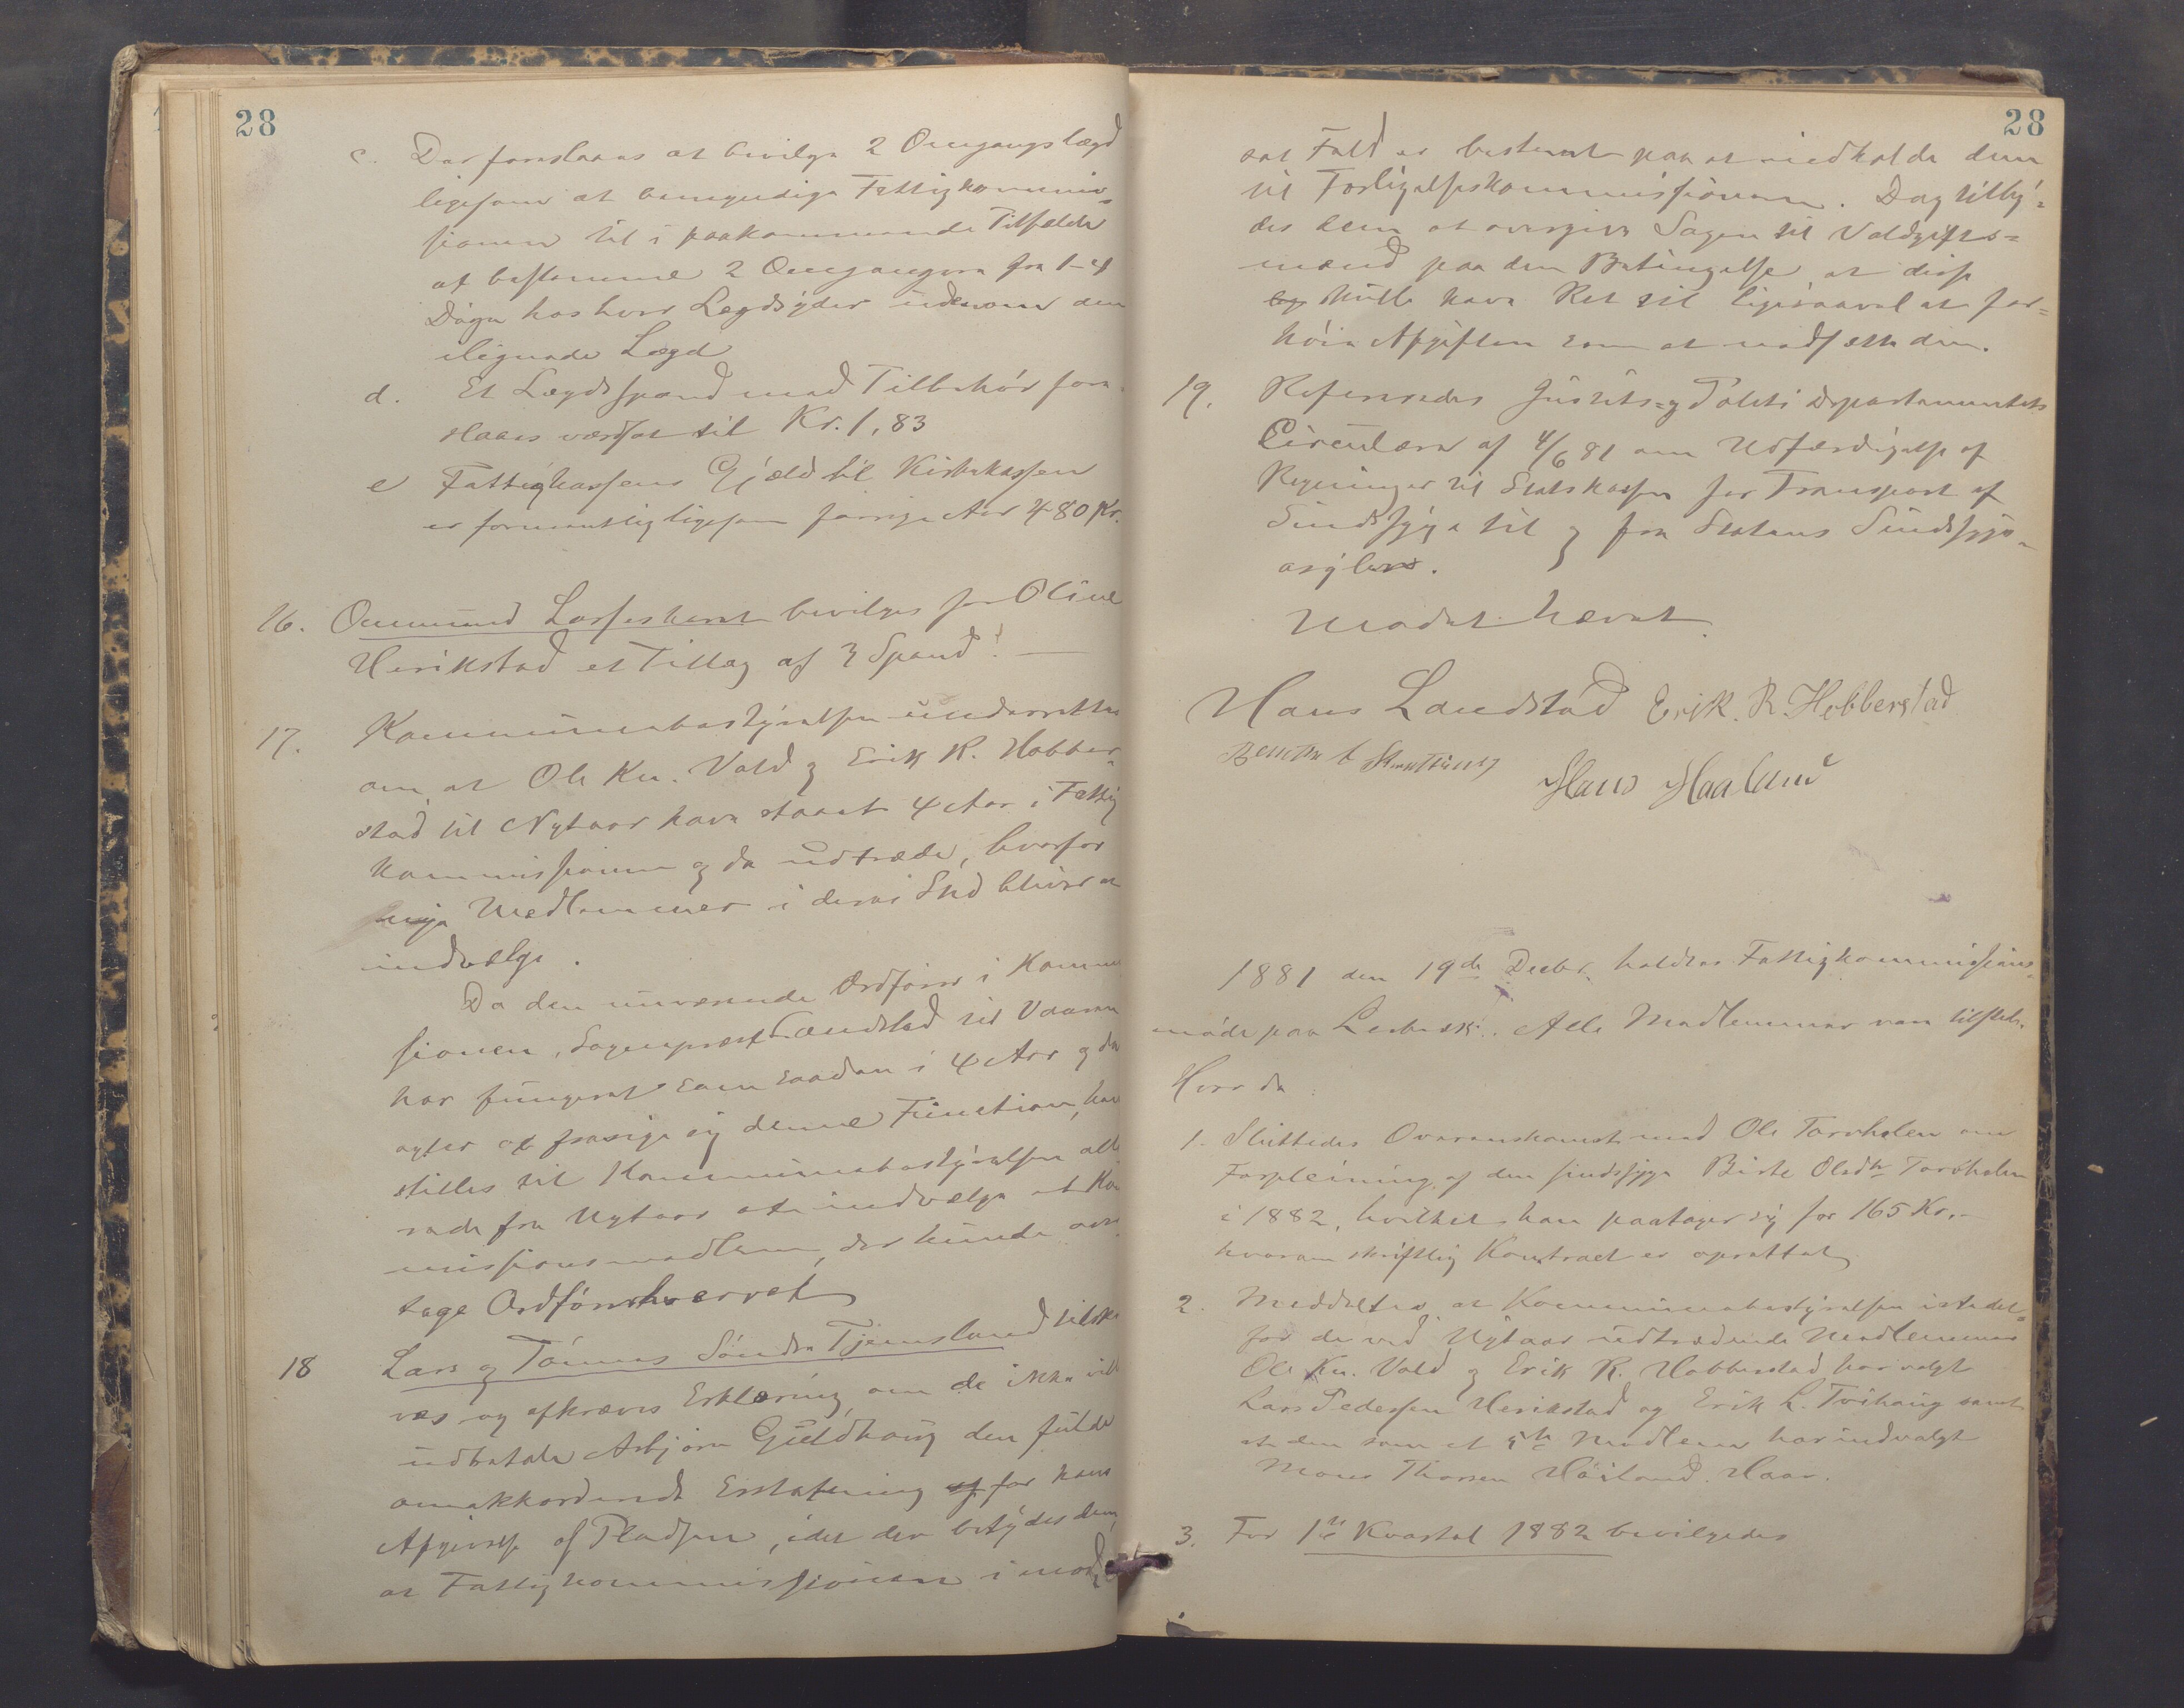 28
c. Der foreslaaes at bevilge 2 Omgangslægd
ligesom at bemyndige Fattigkommis=
sionen til i paakommende Tilfælde
at bestemme 2 Omgangere fra 1-4
Dage hos hver Lægdsyder udenom den
ilignede Lægd
d. Et Lægdsspand med Tilbehør fore=
slaaes værdsat til Kr. 1,83
e Fattigkassens Gjæld til Kirkekassen
er formentlig ligesom forrige Aar 480 Kr.
16. Ommund Lasseskaret bevilges for Oline
Herikstad et Tillæg af 3 Spand! —
17. Kommunebestyrelsen underrettes
om, at Ole Kn. Vold og Erik R. Hobber=
stad til Nytaar have staaet 4 Aar i Fattig
kommissionen og da udtræde, hvorfor
nye Medlemmer i deres Sted bliver at
indvælge.
Da den nuværende Ordfører i Kommis
sionen, Sogneprest Landstad til Vaaren
har fungeret som saadan i 4 Aar og da
agter at frasige sig denne Function, hen
stilles til Kommunebestyrelsen alle
rede fra Nytaar at indvælge et Kom
missionsmedlem, der kunde over
tage Ordførerhvervet
18 Lars og Tønnes Søndre Tjemsland tilskri
ves og afkræves Erklæring, om de ikke ville
udbetale Asbjørn Guldhaug den fulde
omakkorderede Erstatning af for hans
Afgivelse af Pladsen, idet der betydes dem,
at Fattigkommissionen i mod
28
sat Fald er bestemt paa at indkalde dem
til Forligelseskommissionen. Dog tilby=
des dem at overgive Sagen til Voldgifts=
mænd paa den Betingelse at disse
og skulle have Ret til ligesaavel at for=
høie Afgiften som at nedsætte den.
19. Refereredes Justits= og Politi Departementets
Circulære af 4/6 81 om Udfærdigelse af
Regninger til Statskassen for Transport af
Sindssyge til og fra Statens Sindssyge=
asyler.
Mødet hævet.
Hans Landstad Erik. R. Hobberstad
Hans Haaland
1881 den 19de Decbr. holdtes Fattigkommissions=
møde paa . Alle Medlemmer vare tilstede.
Hvor da
1. Sluttedes Overenskomst med Ole Torvholen om
Forpleining af den sindssyge Birte Olsdtr Torvholen
i 1882, hvilket han paatager sig for 165 Kr.-
hvorom skriftlig Kontract er oprettet
2. Meddeltes at Kommunebestyrelsen istedet=
for de ved Nytaar udtrædende Medlemmer
Ole Kn. Vold og Erik R. Hobberstad har valgt
Lars Pedersen Herikstad og Erik L. Tvihaug samt
at den som et 5te Medlem har indvalgt
Mons Thorsen Høiland. Haar.
3. For 1ste Kvartal 1882 bevilgedes